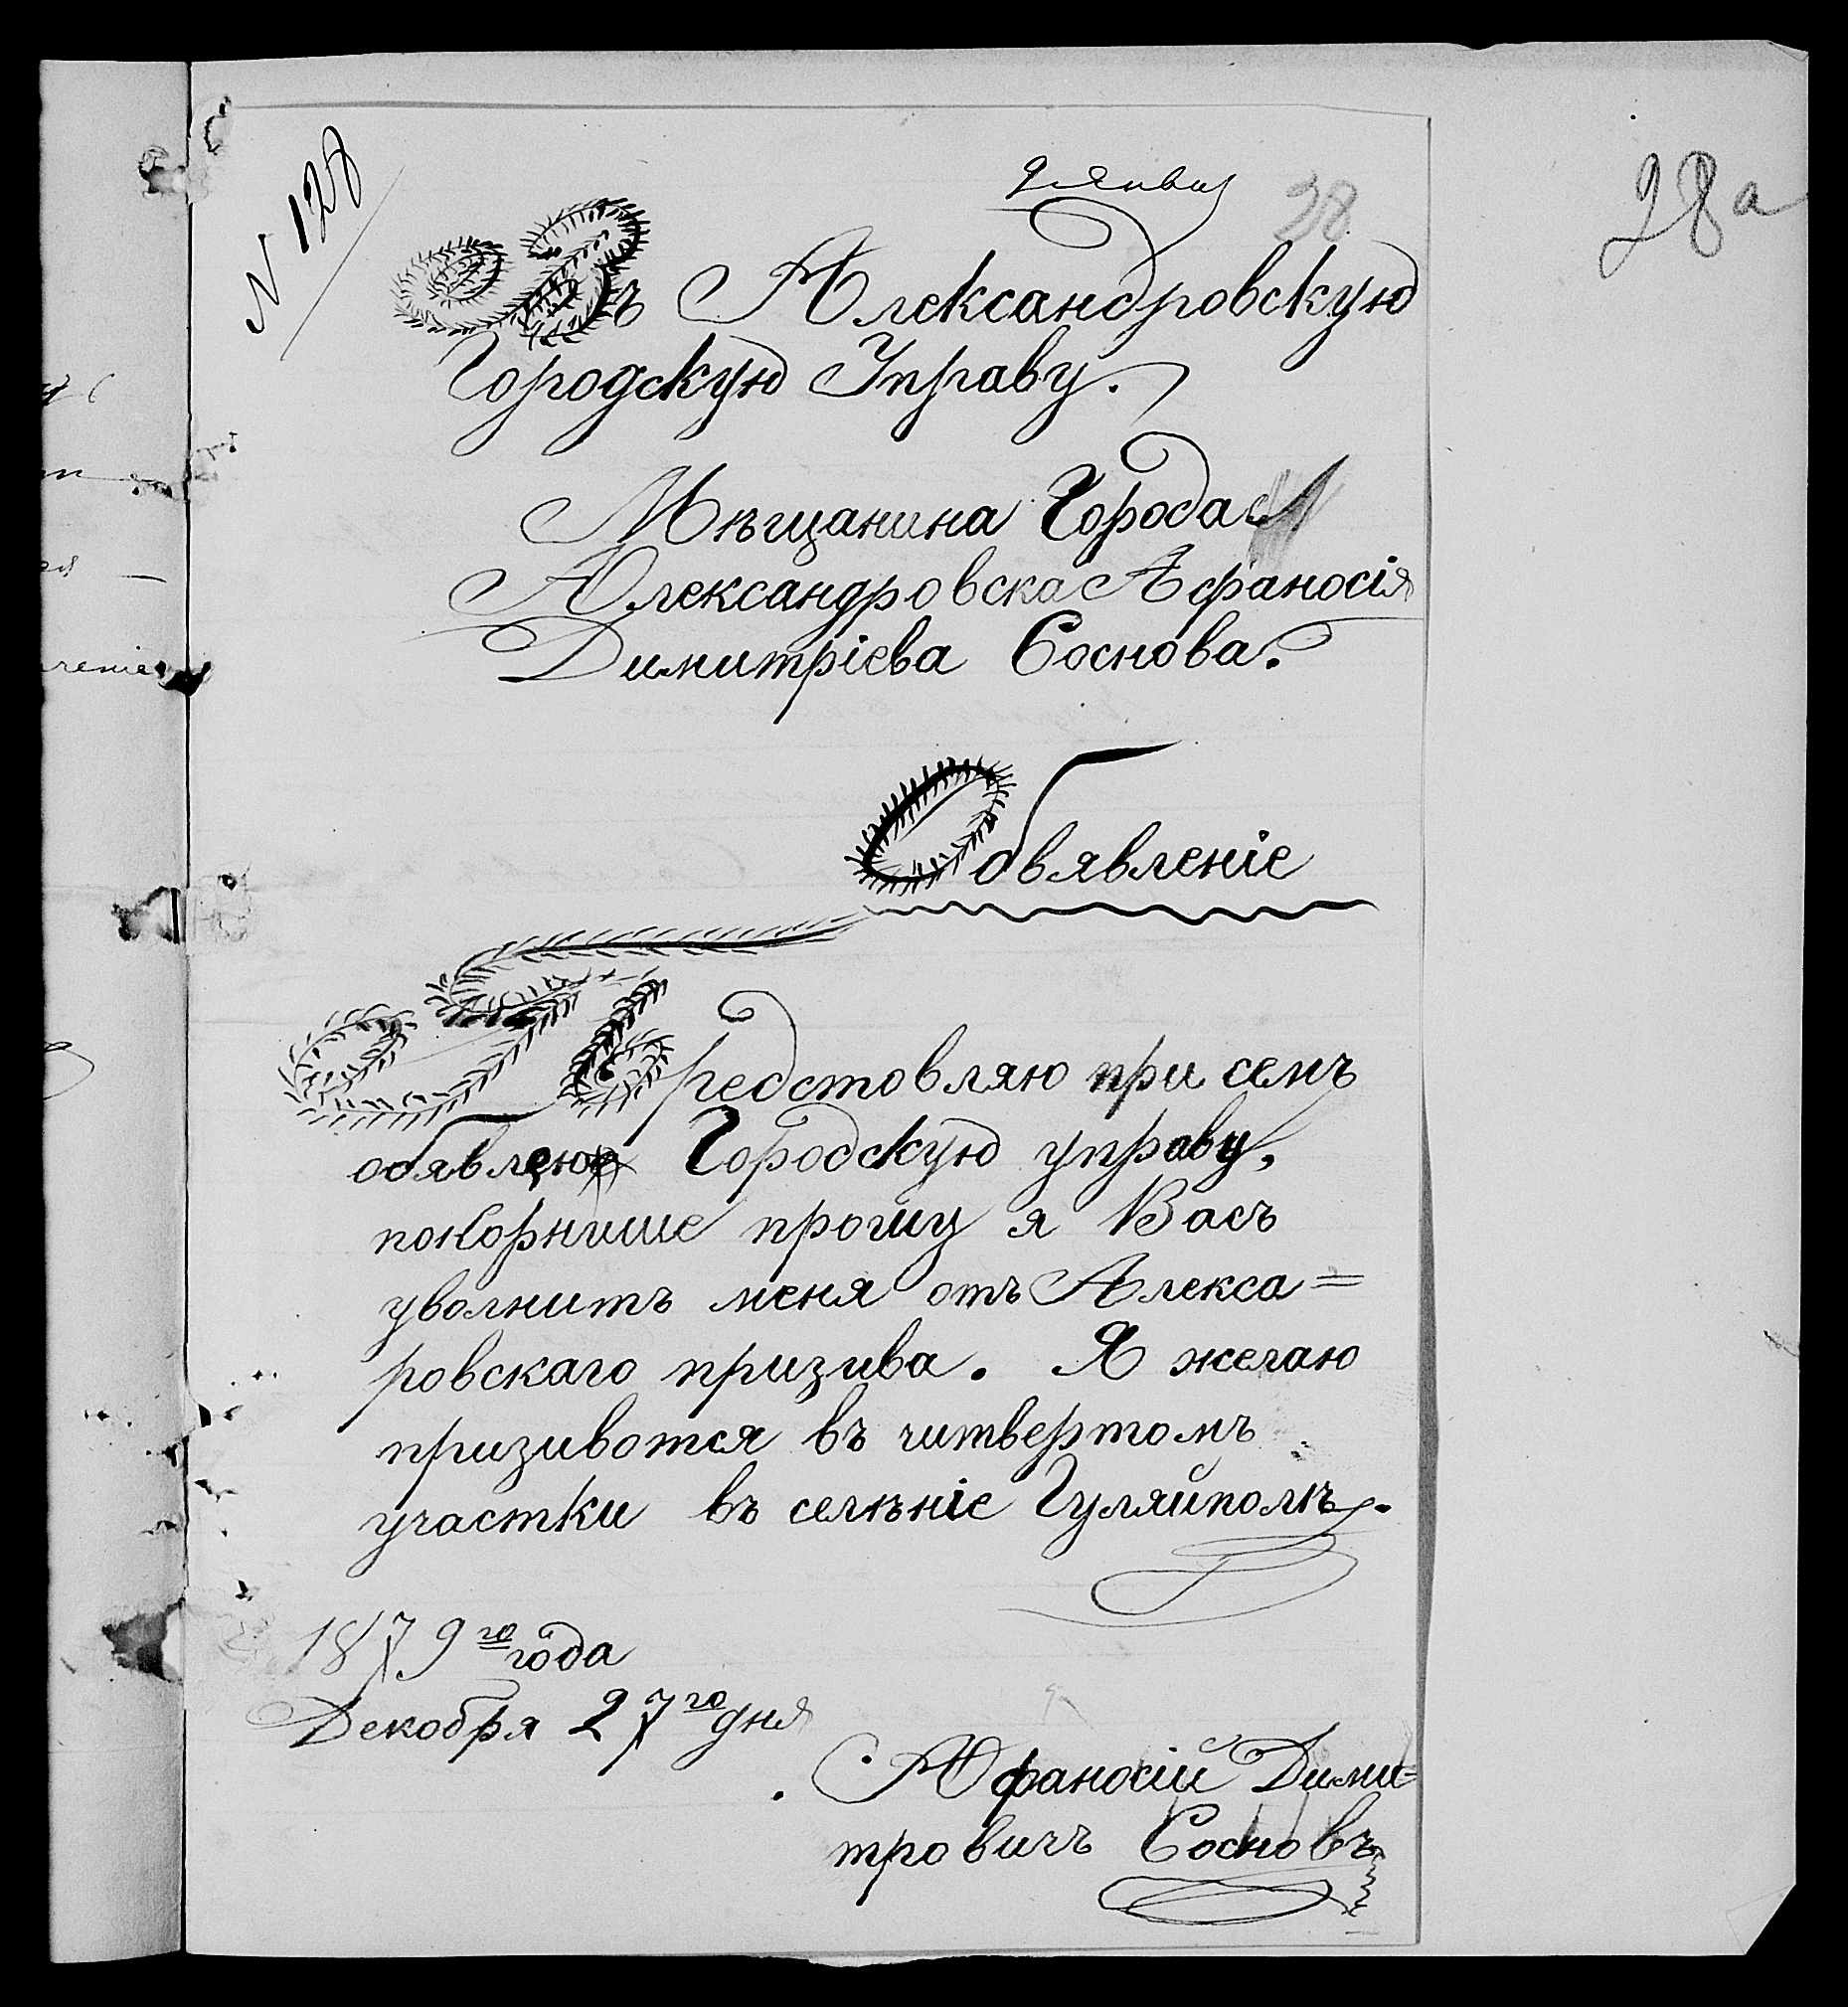 N 128
28 а
28
9 янва
Въ Александровскую
Городскую Управу.
Мѣщанина Города
Александровска Афаносія
Димитріева Соснова.
Обвявленіе
Предстовляю при семъ
обявлен Городскую управу,
покорнише прошу я Васъ
уволнитъ меня отъ Алекса=
ровскаго призива. Я желаю
призивотся въ читвертомъ
участки въ селѣніе Гуляйполѣ.
1879го года
Декобря 27го дня
Афаносій Дими=
тровичъ Сосновъ